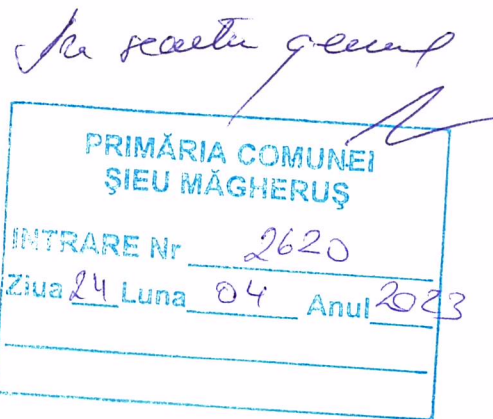 PRIMĂRIA COMUNEI
ŞIEU MĂGHERUŞ
INTRARE Nr 2620
Ziua 24 Luna 04 Anul 2023